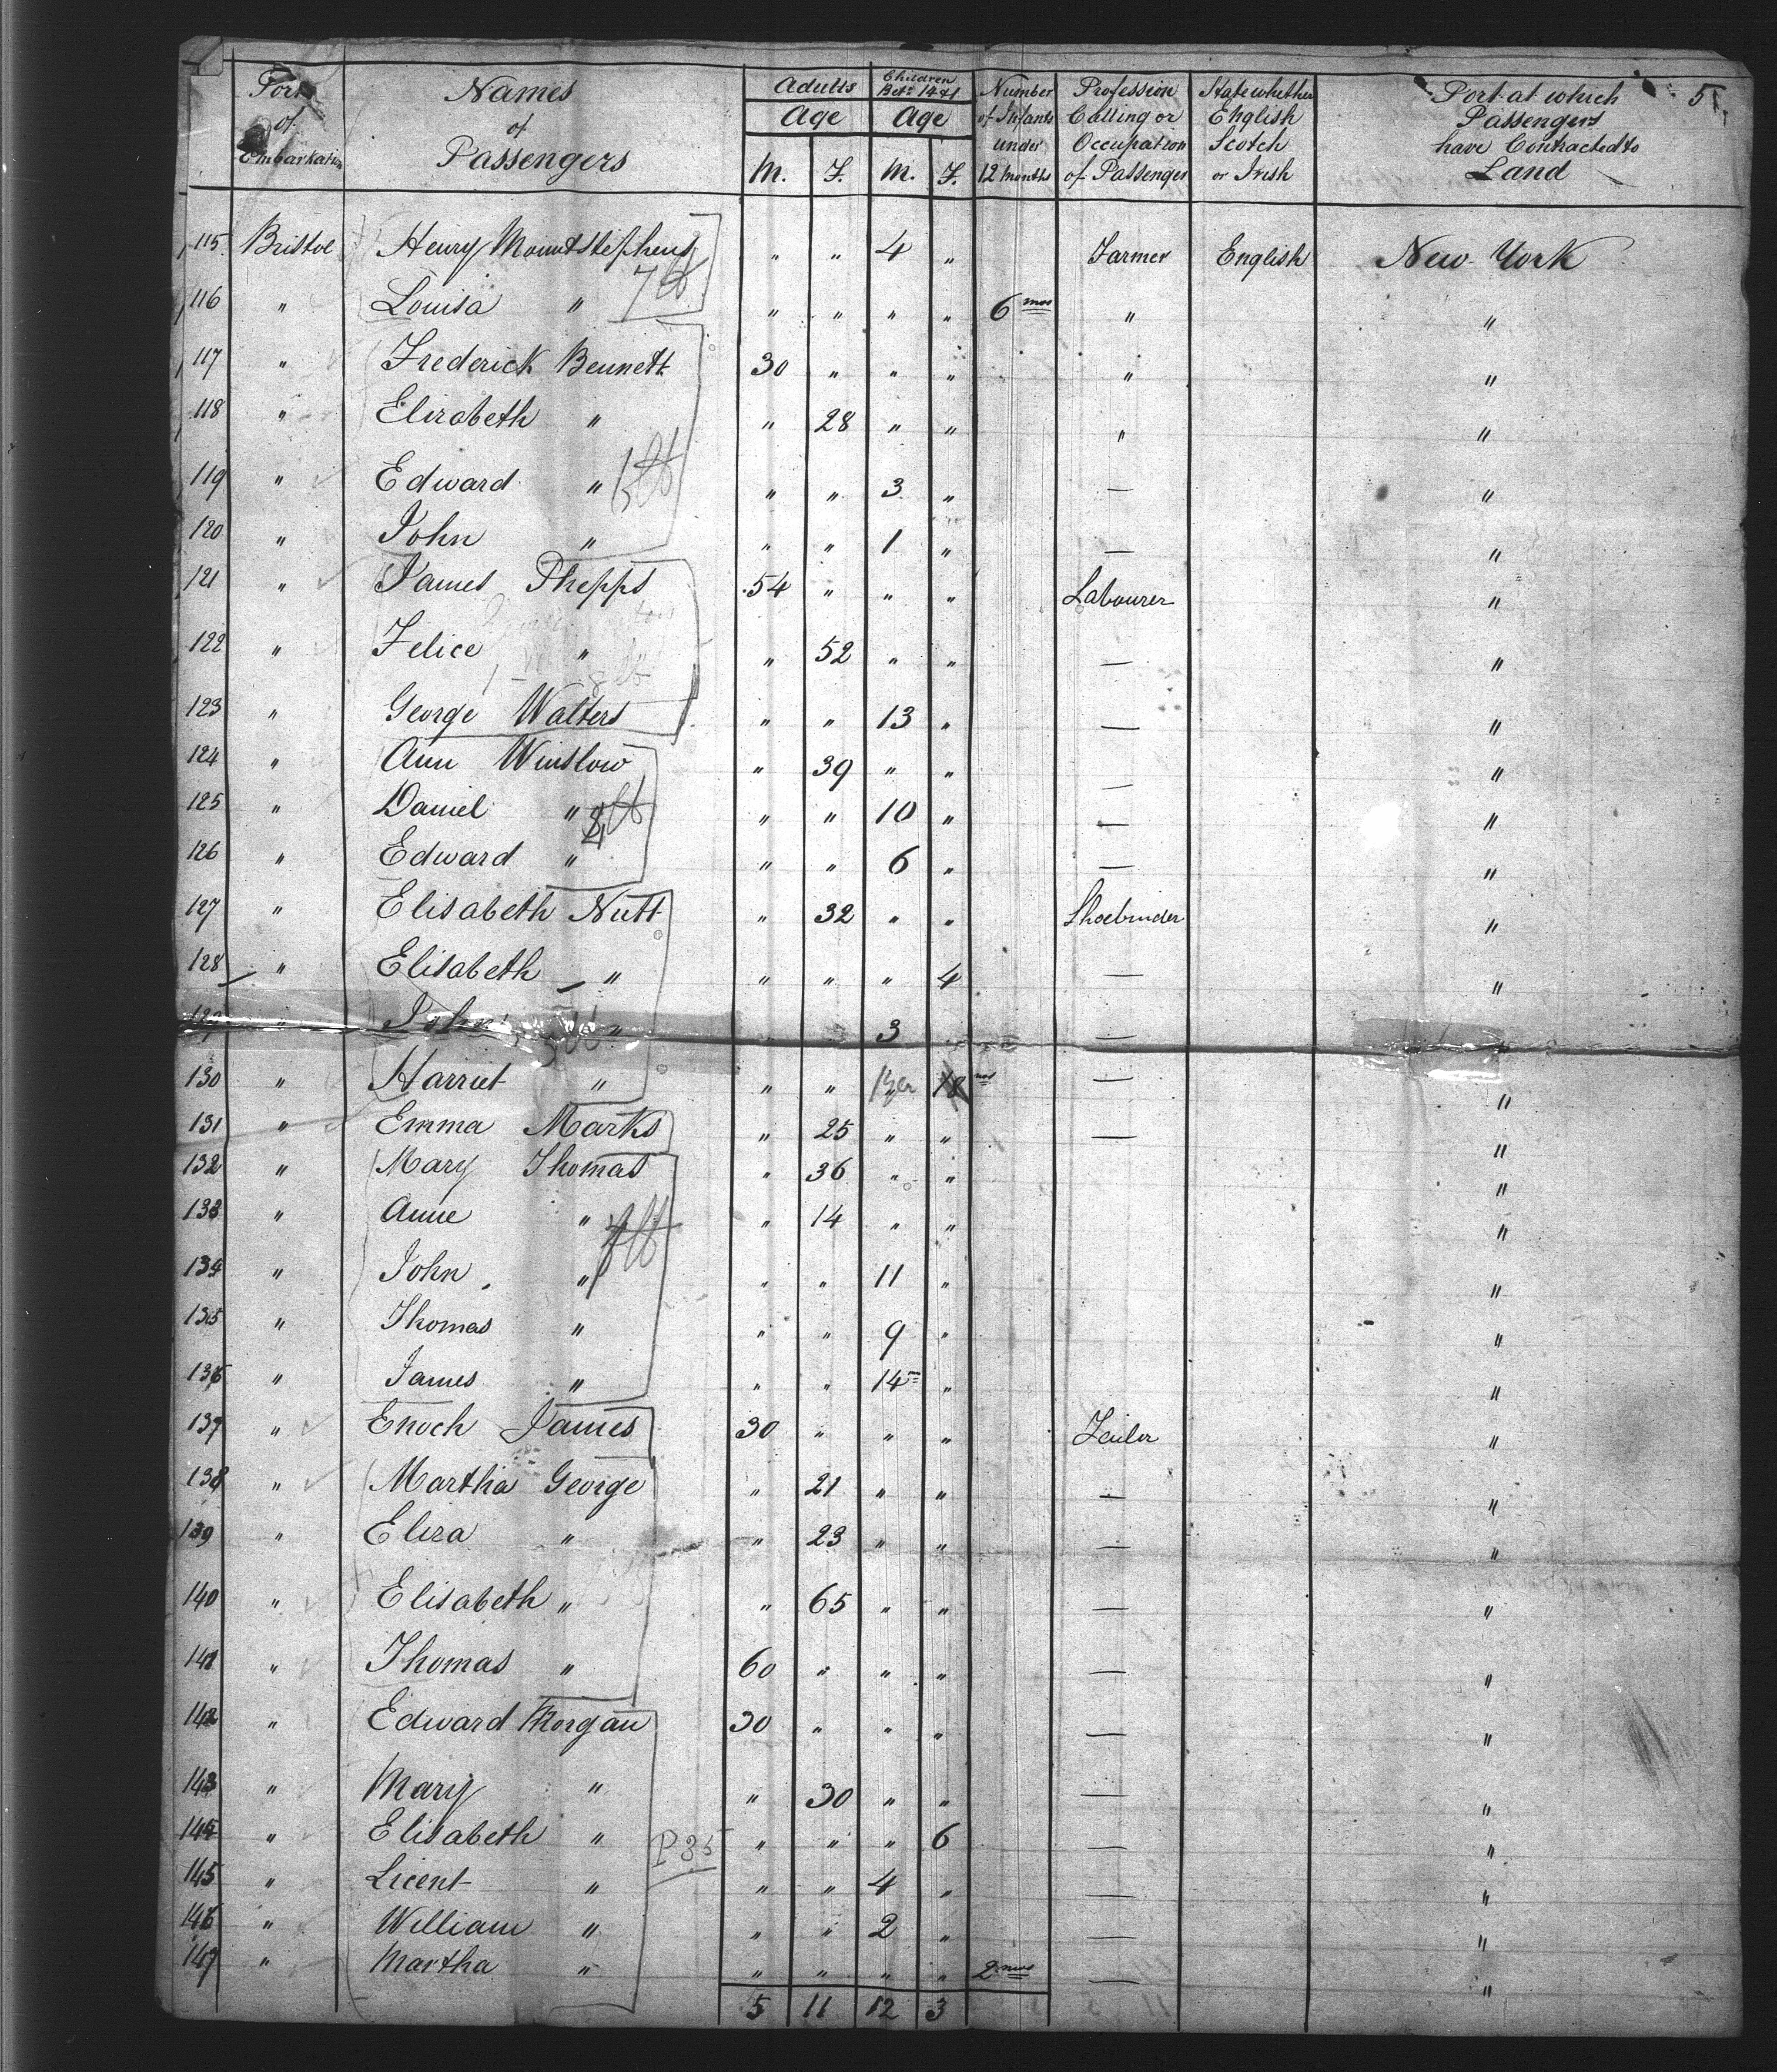 5.
Port of Embarkation | Names of Passengers | Adults Age M. F. | Children Betn 14 & 1 Age M. F. | Number of Infants under 12 Months | Profession Calling or Occupation of Passenger | State whether English Scotch or Irish | Port at which Passengers have Contracted to Land
115 Bristol Henry Mountstephens " " 4 " Farmer English New York
116 " Louisa " " " " " 6 mos " "
117 " Frederick Bennett 30 " " " " "
118 " Elizabeth " " 28 " " " "
119 " Edward " " " 3 " — "
120 " John " " " 1 " — "
121 " James Phepps 54 " " " Labourer "
122 " Felice " " 52 " " — "
123 " George Walters " " 13 " — "
124 " Ann Winslow " 39 " " — "
125 " Daniel " " " 10 " — "
126 " Edward " " " 6 " — "
127 " Elisabeth Nutt " 32 " " Shoebinder "
128 " Elisabeth " " " " 4 — "
129 " John " 3 —
130 " Harriet " " " 1 yr 18 mos — "
131 " Emma Marks " 25 " " — "
132 " Mary Thomas " 36 " " "
133 " Anne " " 14 " " "
134 " John " " " 11 " "
135 " Thomas " " " 9 " "
136 " James " " " 14 m " "
137 " Enoch James 30 " " " "
138 " Martha George " 21 " " — "
139 " Eliza " " 23 " " — "
140 " Elisabeth " " 65 " " — "
141 " Thomas " 60 " " " — "
142 " Edward Morgan 30 " " " — "
143 " Mary " " 30 " " — "
144 " Elisabeth " " " " 6 — "
P 35
145 " Licent " " " 4 " — "
146 " William " " " 2 " — "
147 " Martha " " " " " 2 mos — "
5 11 12 3